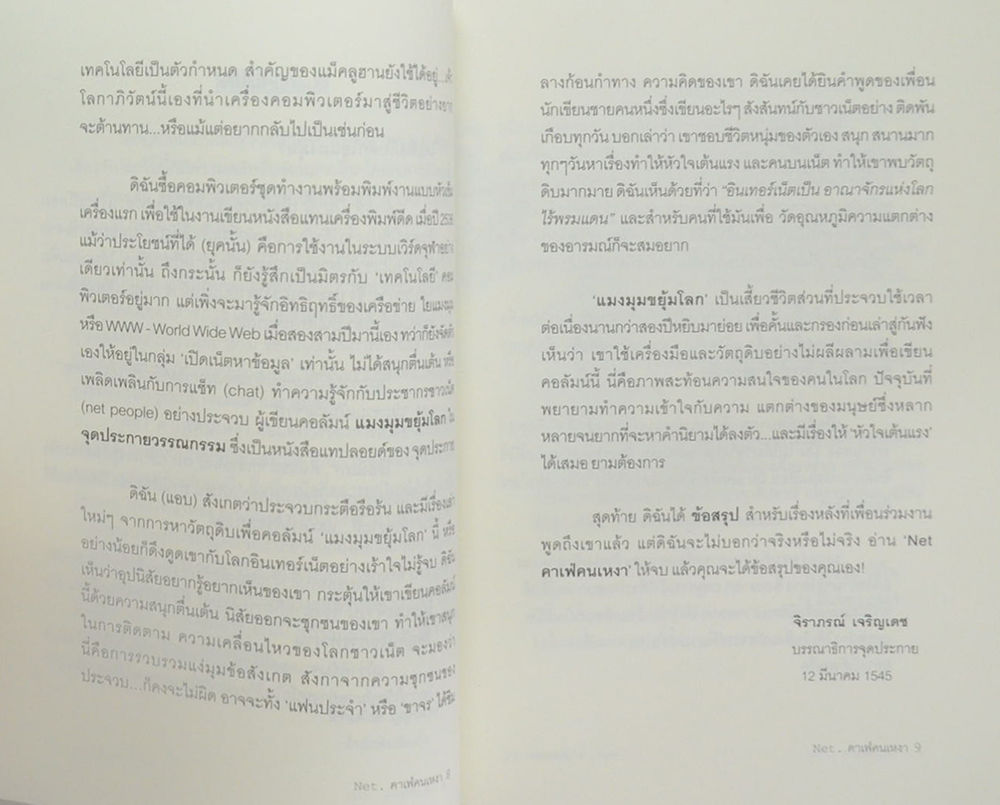 เทคโนโลยีเป็นตัวกำหนด สำคัญของแม็คลูฮานยังใช้ได้อยู่...
โลกาภิวัตน์นี้เองที่นำเครื่องคอมพิวเตอร์มาสู่ชีวิตอย่าง
จะต้านทาน...หรือแม้แต่อยากกลับไปเป็นเช่นก่อน
ดิฉันซื้อคอมพิวเตอร์ชุดทำงานพร้อมพิมพ์งานแบบ
เครื่องแรก เพื่อใช้ในงานเขียนหนังสือแทนเครื่องพิมพ์ดีด เมื่อปี
แม้ว่าประโยชน์ที่ได้ (ยุคนั้น) คือการใช้งานในระบบเวิร์ดจุฬา
เดียวเท่านั้น ถึงกระนั้น ก็ยังรู้สึกเป็นมิตรกับ 'เทคโนโลยี' คอม
พิวเตอร์อยู่มาก แต่เพิ่งจะมารู้จักอิทธิฤทธิ์ของเครือข่าย ใยแมงมุม
หรือ WWW - World Wide Web เมื่อสองสามปีมานี้เอง ทว่าก็ยังจัดตัว
เองให้อยู่ในกลุ่ม 'เปิดเน็ตหาข้อมูล' เท่านั้น ไม่ได้สนุกตื่นเต้น หรือ
เพลิดเพลินกับการแช็ท (chat) ทำความรู้จักกับประชากรชาวเน็ต
(net people) อย่างประจวบ ผู้เขียนคอลัมน์ แมงมุมขยุ้มโลก ใน
จุดประกายวรรณกรรม ซึ่งเป็นหนังสือแทปลอยด์ของ จุดประกาย
ดิฉัน (แอบ) สังเกตว่าประจวบกระตือรือร้น และมีเรื่อง
ใหม่ๆ จากการหาวัตถุดิบเพื่อคอลัมน์ 'แมงมุมขยุ้มโลก' นี้ หรือ
อย่างน้อยก็ดึงดูดเขากับโลกอินเทอร์เน็ตอย่างเร้าใจไม่รู้จบ ดิฉัน
เห็นว่าอุปนิสัยอยากรู้อยากเห็นของเขา กระตุ้นให้เขาเขียนคอลัมน์
นี้ด้วยความสนุกตื่นเต้น นิสัยออกจะซุกซนของเขา ทำให้เขาสนุก
ในการติดตาม ความเคลื่อนไหวของโลกชาวเน็ต จะมองว่า
นี่คือการรวบรวมแง่มุมข้อสังเกต สังกาจากความซุกซนของ
ประจวบ...ก็คงจะไม่ผิด อาจจะทั้ง 'แฟนประจำ' หรือ 'ขาจร' ได้
Net. คาเฟ่คนเหงา 8
ลางก้อนกำทาง ความคิดของเขา ดิฉันเคยได้ยินคำพูดของเพื่อน
นักเขียนชายคนหนึ่งซึ่งเขียนอะไรๆ สังสันทน์กับชาวเน็ตอย่าง ติดพัน
เกือบทุกวัน บอกเล่าว่า เขาชอบชีวิตหนุ่มของตัวเอง สนุก สนานมาก
ทุกๆวันหาเรื่องทำให้หัวใจเต้นแรง และคนบนเน็ต ทำให้เขาพบวัตถุ
ดิบมากมาย ดิฉันเห็นด้วยที่ว่า "อินเทอร์เน็ตเป็น อาณาจักรแห่งโลก
ไร้พรมแดน" และสำหรับคนที่ใช้มันเพื่อ วัดอุณหภูมิความแตกต่าง
ของอารมณ์ก็จะสมอยาก
'แมงมุมขยุ้มโลก' เป็นเสี้ยวชีวิตส่วนที่ประจวบใช้เวลา
ต่อเนื่องนานกว่าสองปีหยิบมาย่อย เพื่อคั้นและกรองก่อนเล่าสู่กันฟัง
เห็นว่า เขาใช้เครื่องมือและวัตถุดิบอย่างไม่ผลีผลามเพื่อเขียน
คอลัมน์นี้ นี่คือภาพสะท้อนความสนใจของคนในโลก ปัจจุบันที่
พยายามทำความเข้าใจกับความ แตกต่างของมนุษย์ซึ่งหลาก
หลายจนยากที่จะหาคำนิยามได้ลงตัว...และมีเรื่องให้ 'หัวใจเต้นแรง'
ได้เสมอ ยามต้องการ
สุดท้าย ดิฉันได้ ข้อสรุป สำหรับเรื่องหลังที่เพื่อนร่วมงาน
พูดถึงเขาแล้ว แต่ดิฉันจะไม่บอกว่าจริงหรือไม่จริง อ่าน 'Net
คาเฟ่คนเหงา' ให้จบ แล้วคุณจะได้ข้อสรุปของคุณเอง!
จิราภรณ์ เจริญเดช
บรรณาธิการจุดประกาย
12 มีนาคม 1545
Net. คาเฟ่คนเหงา 9